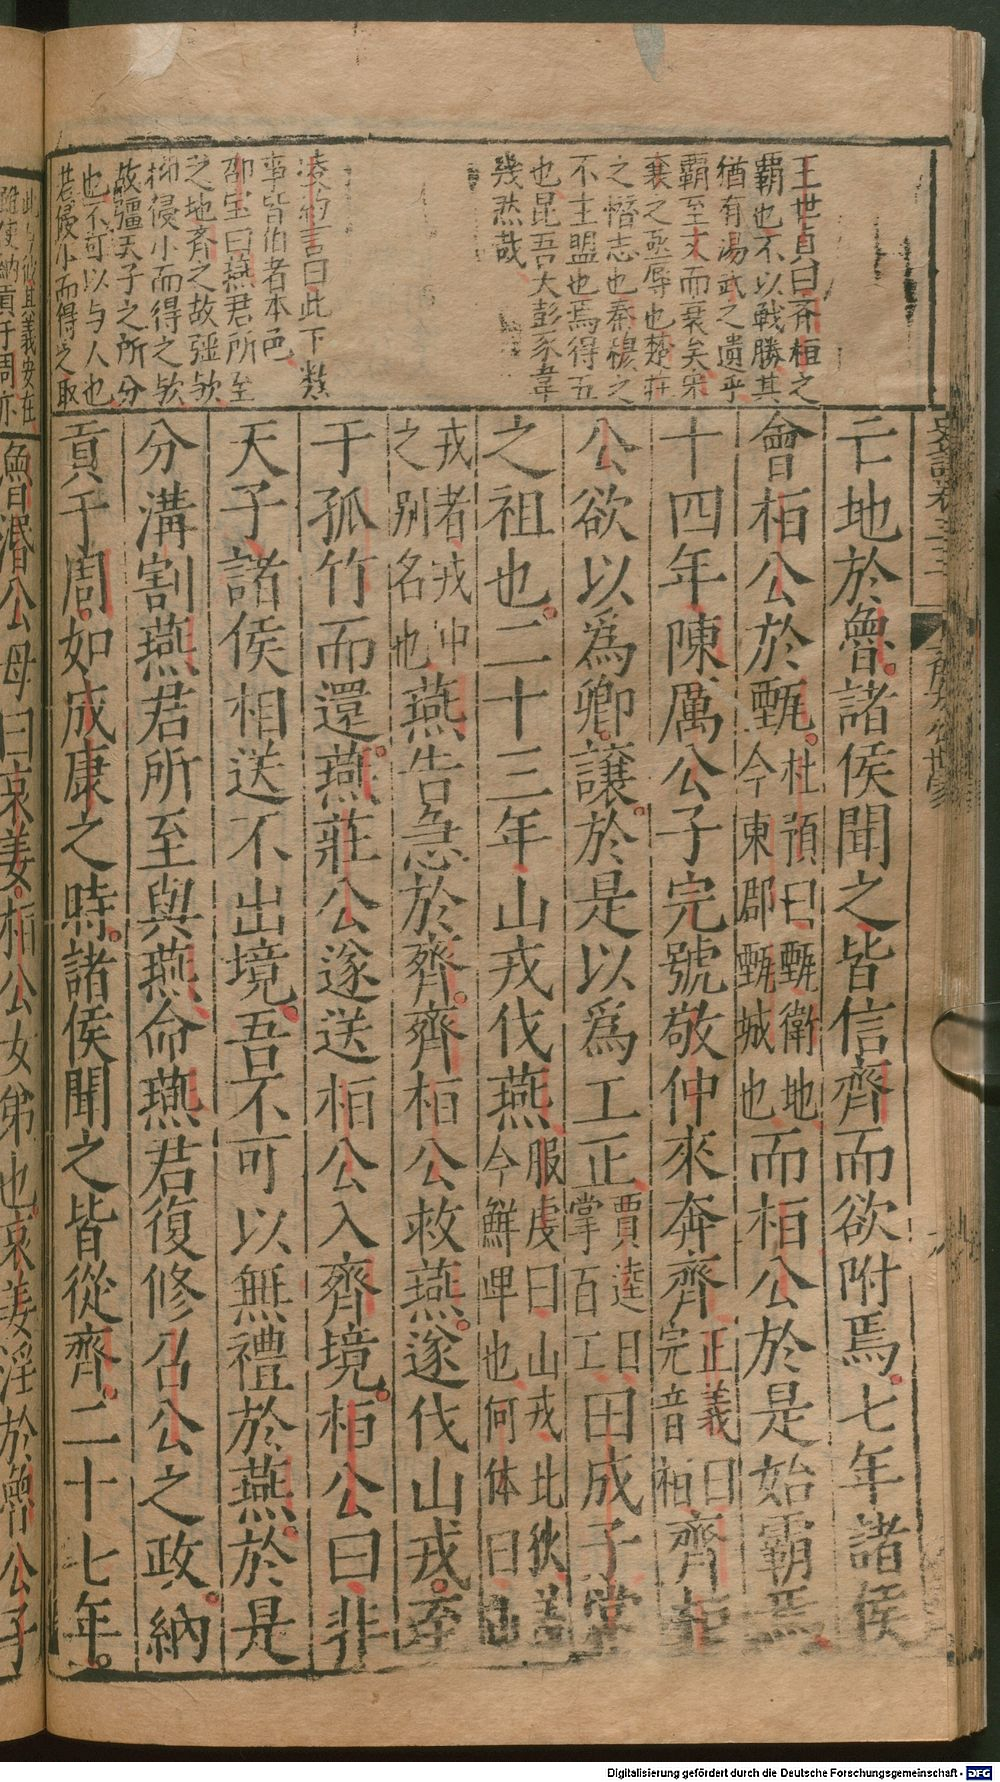 王世貞曰齊桓之
覇也不以戰勝其
猶有湯武之遺乎
覇至文而衰矣宋
襄之亟辱也楚莊
之僭志也秦穆之
不主盟也焉得五
也昆吾大彭豕韋
幾然哉
凌約言曰此下數
事皆伯者本色
邵宝曰燕君所至
之地齊之故疆欤
抑侵小而得之欤
故疆天子之所分
也不可以与人也
若侵小而得之取
亡地於魯諸侯聞之皆信齊而欲附焉七年諸侯
會桓公於甄杜預曰甄衛地今東郡甄城也而桓公於是始霸焉
十四年陳厲公子完號敬仲來奔齊正義曰完音桓齊桓
公欲以爲卿讓於是以爲工正賈逵曰掌百工田成子常
之祖也二十三年山戎伐燕服虔曰山戎北狄蓋今鮮卑也何休曰山
戎者戎中之別名也燕告急於齊齊桓公救燕遂伐山戎至
于孤竹而還燕莊公遂送桓公入齊境桓公曰非
天子諸侯相送不出境吾不可以無禮於燕於是
分溝割燕君所至與燕命燕君復修召公之政納
貢于周如成康之時諸侯聞之皆從齊二十七年
魯湣公母曰哀姜桓公女弟也哀姜淫於魯公子
齊太公世家
Digitalisierung gefördert durch die Deutsche Forschungsgemeinschaft - DFG